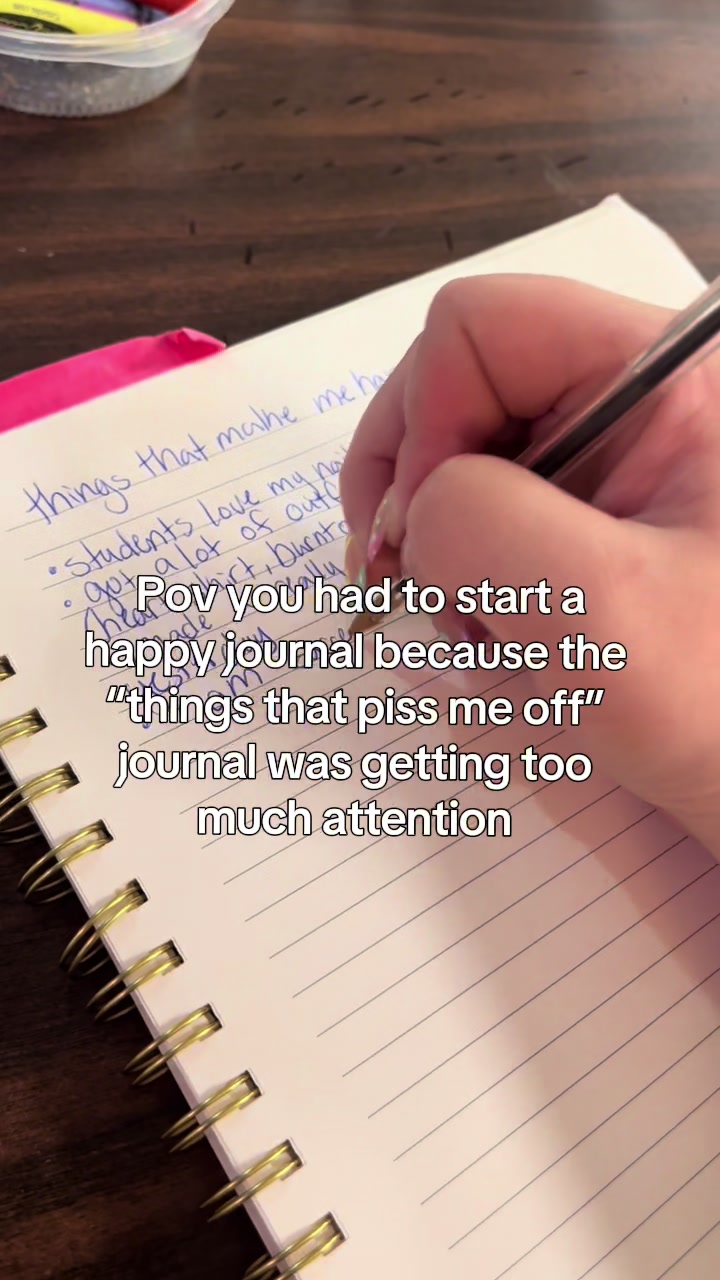 things that make me ha
• students love my nai
• got a lot of outf
(heart shirt, burnt o
made really
Pov you had to start a
happy journal because the
“things that piss me off”
journal was getting too
much attention